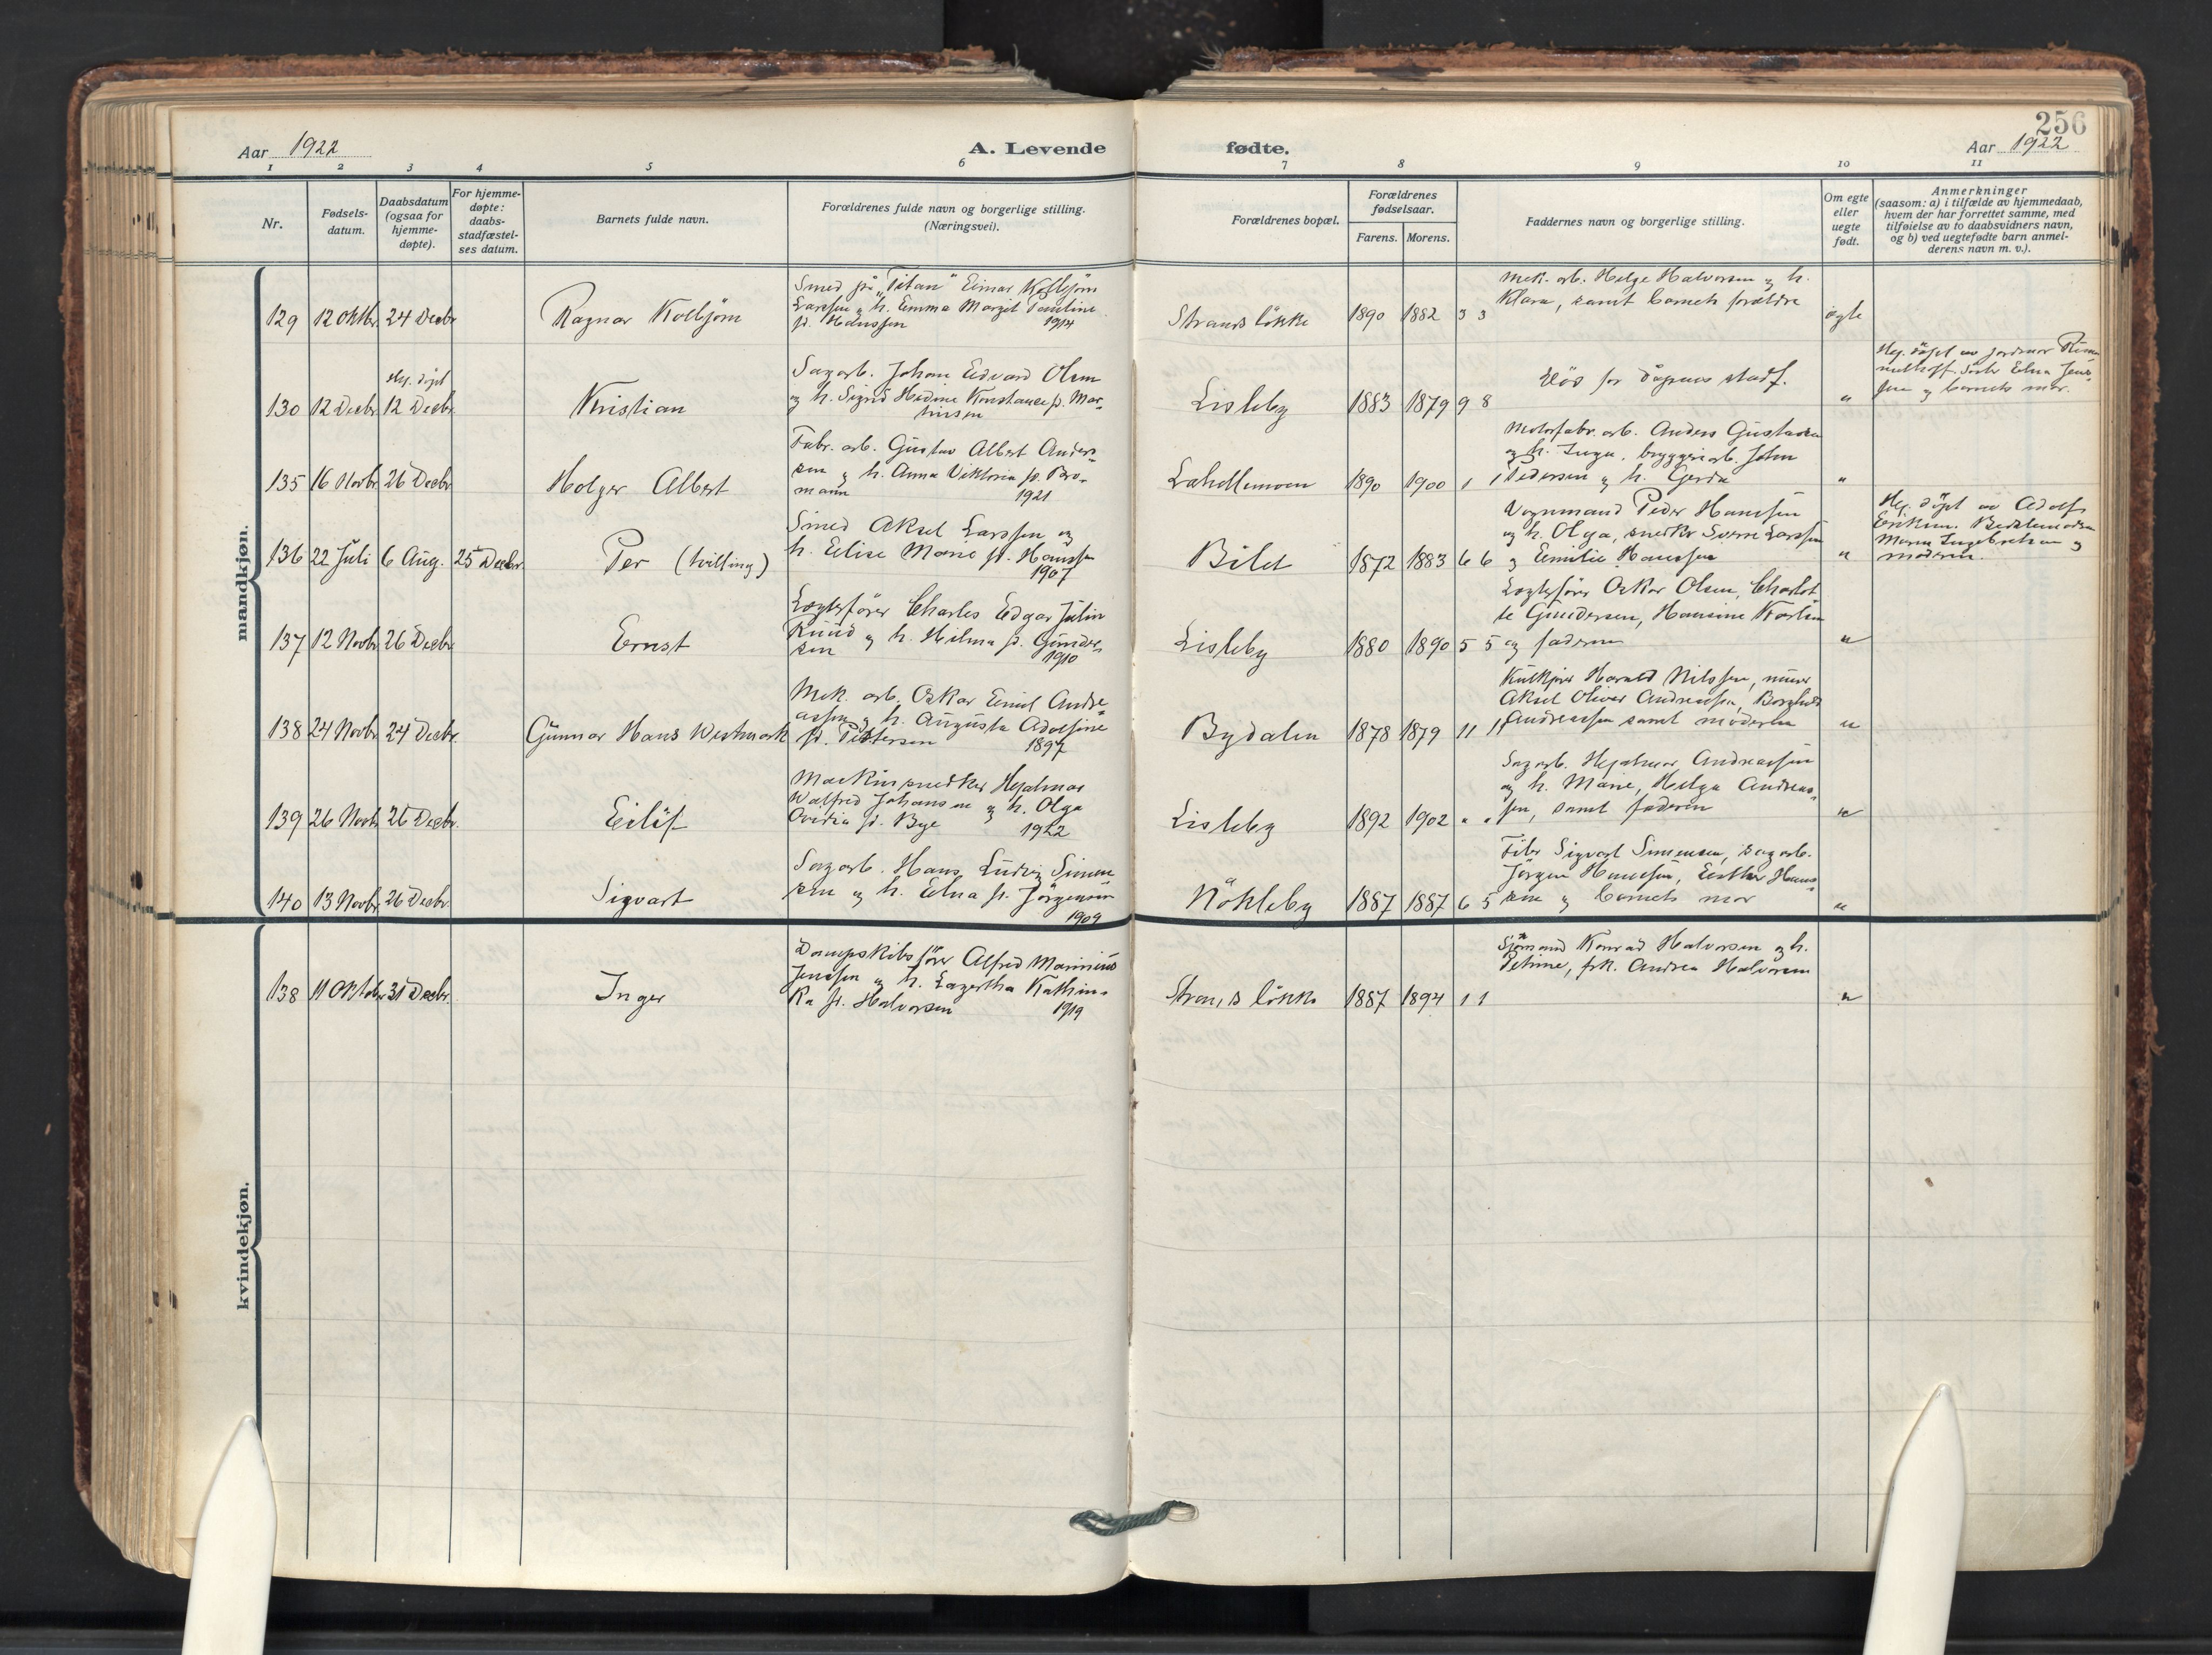 256
Aar 1922
A. Levende
fødte.
Aar 1922
1 2 3 4 5 6 7 8 9 10 11
Nr.
Fødsels-
datum.
Daabsdatum
(ogsaa for
hjemme-
døpte).
For hjemme-
døpte:
daabs-
stadfæstel-
ses datum.
Barnets fulde navn.
Forældrenes fulde navn og borgerlige stilling.
(Næringsvei).
Forældrenes bopæl.
Forældrenes
fødselsaar.
Farens. Morens.
Faddernes navn og borgerlige stilling.
Om egte
eller
uegte
født.
Anmerkninger
(saasom: a) i tilfælde av hjemmedaab,
hvem der har forrettet samme, med
tilføielse av to daabsvidners navn,
og b) ved uegtefødte barn anmel-
derens navn m. v.).
mandkjøn.
129 12 Oktbr. 24 Decbr
Ragnar Kolbjörn
Smed på "Titan" Einar Kolbjörn
Larssen og h. Emma Margit Pauline
f. Hanssen 1914
Strands løkke
1890 1882 3 3
Mek. arb. Helge Halvorsen og h.
Klara, samt barnets forældre
ægte
Hj. döpt
130 12 Decbr. 12 Decbr.
Kristian
Sagarb. Johan Edvard Olsen
og h. Sigrid Hedine Konstance f. Mar-
tinsen
Lisleby
1883 1879 9 8
Död før dåpens stadf.
"
Hj. döpt av jordmor
Edna Jens-
sen og barnets mor.
135 16 Novbr 26 Decbr
Holger Albert
Fabr. arb. Gustav Albert Anders-
sen og h. Anna Viktoria f. Bro-
mann 1921
Lahellemoen
1890 1900 1 1
Motorfabr. arb. Anders Gustavsen
og h. Inga, bryggeriarb. John
Pedersen og h. Gerda
"
136 22 Juli 6 Aug. 25 Decbr.
Per (tvilling)
Smed Aksel Larssen og
h. Elise Marie f. Hanssen
1907
Bilet
1872 1883 6 6
Vognmand Peder Hanssen
og h. Olga, snedker Sverre Larssen
og Emilie Hanssen
"
Hj. döpt av Adolf
Eriksen. Bedstemoderen
Maren Ingebretsen og
moderen.
137 12 Novbr 26 Decbr
Ernst
Lægterfører Charles Edgar Julin
Ruud og h. Hilma f. Gunder-
sen 1910
Lisleby
1880 1890 5 5
Lægterfører Oskar Olsen, Charlot
te Gundersen, Hansine Karlsen
og faderen
"
138 24 Novbr 24 Decbr.
Gunnar Hans Westmark
Mek. arb. Oskar Emil Andre-
assen og h. Augusta Adolfine
f. Pettersen 1897
Bydalen
1878 1879 11 11
Kulkjører Harald Nilssen, murer
Aksel Oliver Andreassen, Borghild
Andreassen samt moderen
"
139 26 Novbr 26 Decbr.
Eilif
Maskinsnedker Hjalmar
Walfred Johansen og h. Olga
Ovidia f. Bye 1922
Lisleby
1892 1902 " "
Sagarb. Hjalmar Andreassen
og h. Marie, Helga Andreas-
sen, samt faderen
"
140 13 Novbr. 26 Decbr.
Sigvart
Sagarb. Hans Ludvig Simen
sen og h. Edna f. Jörgensen
1909
Nökleby
1887 1887 6 5
Filer Sigvart Simensen, sagarb.
Jörgen Hanssen, Esther Hans-
sen og barnets mor
"
kvindekjøn.
138 11 Oktober 31 Decbr.
Inger
Dampskibsfører Alfred Marinius
Jenssen og h. Lagertha Kathin-
ka f. Halvorsen 1919
Strands løkke
1887 1894 1 1
Sjømand Konrad Halvorsen og h.
Petrine, frk. Andrea Halvorsen
"